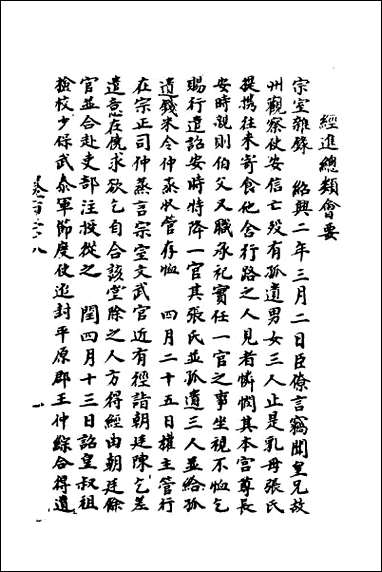 經進總類會要
宗室雜錄　紹興二年三月二日臣僚言竊聞皇兄故
州觀察使安信亡歿有孤遺男女三人止是乳母張氏
提携往来寄食他舍行路之人見者憐憫其本宮尊長
安時親則伯父又職承祀實任一官之事坐視不恤乞
賜行遣詔安時特降一官其張氏並孤遺三人並給孤
遺錢米令仲蒸收管存恤　四月二十五日權主管行
在宗正司仲蒸言宗室文武官近有徑詣朝廷陳乞差
遣意在僥求欲乞自合該堂除之人方得經由朝廷餘
官並合赴吏部注授從之　閏四月十三日詔皇叔祖
檢校少保武泰軍節度使追封平原郡王仲綜合得遺
卷一百六八
一